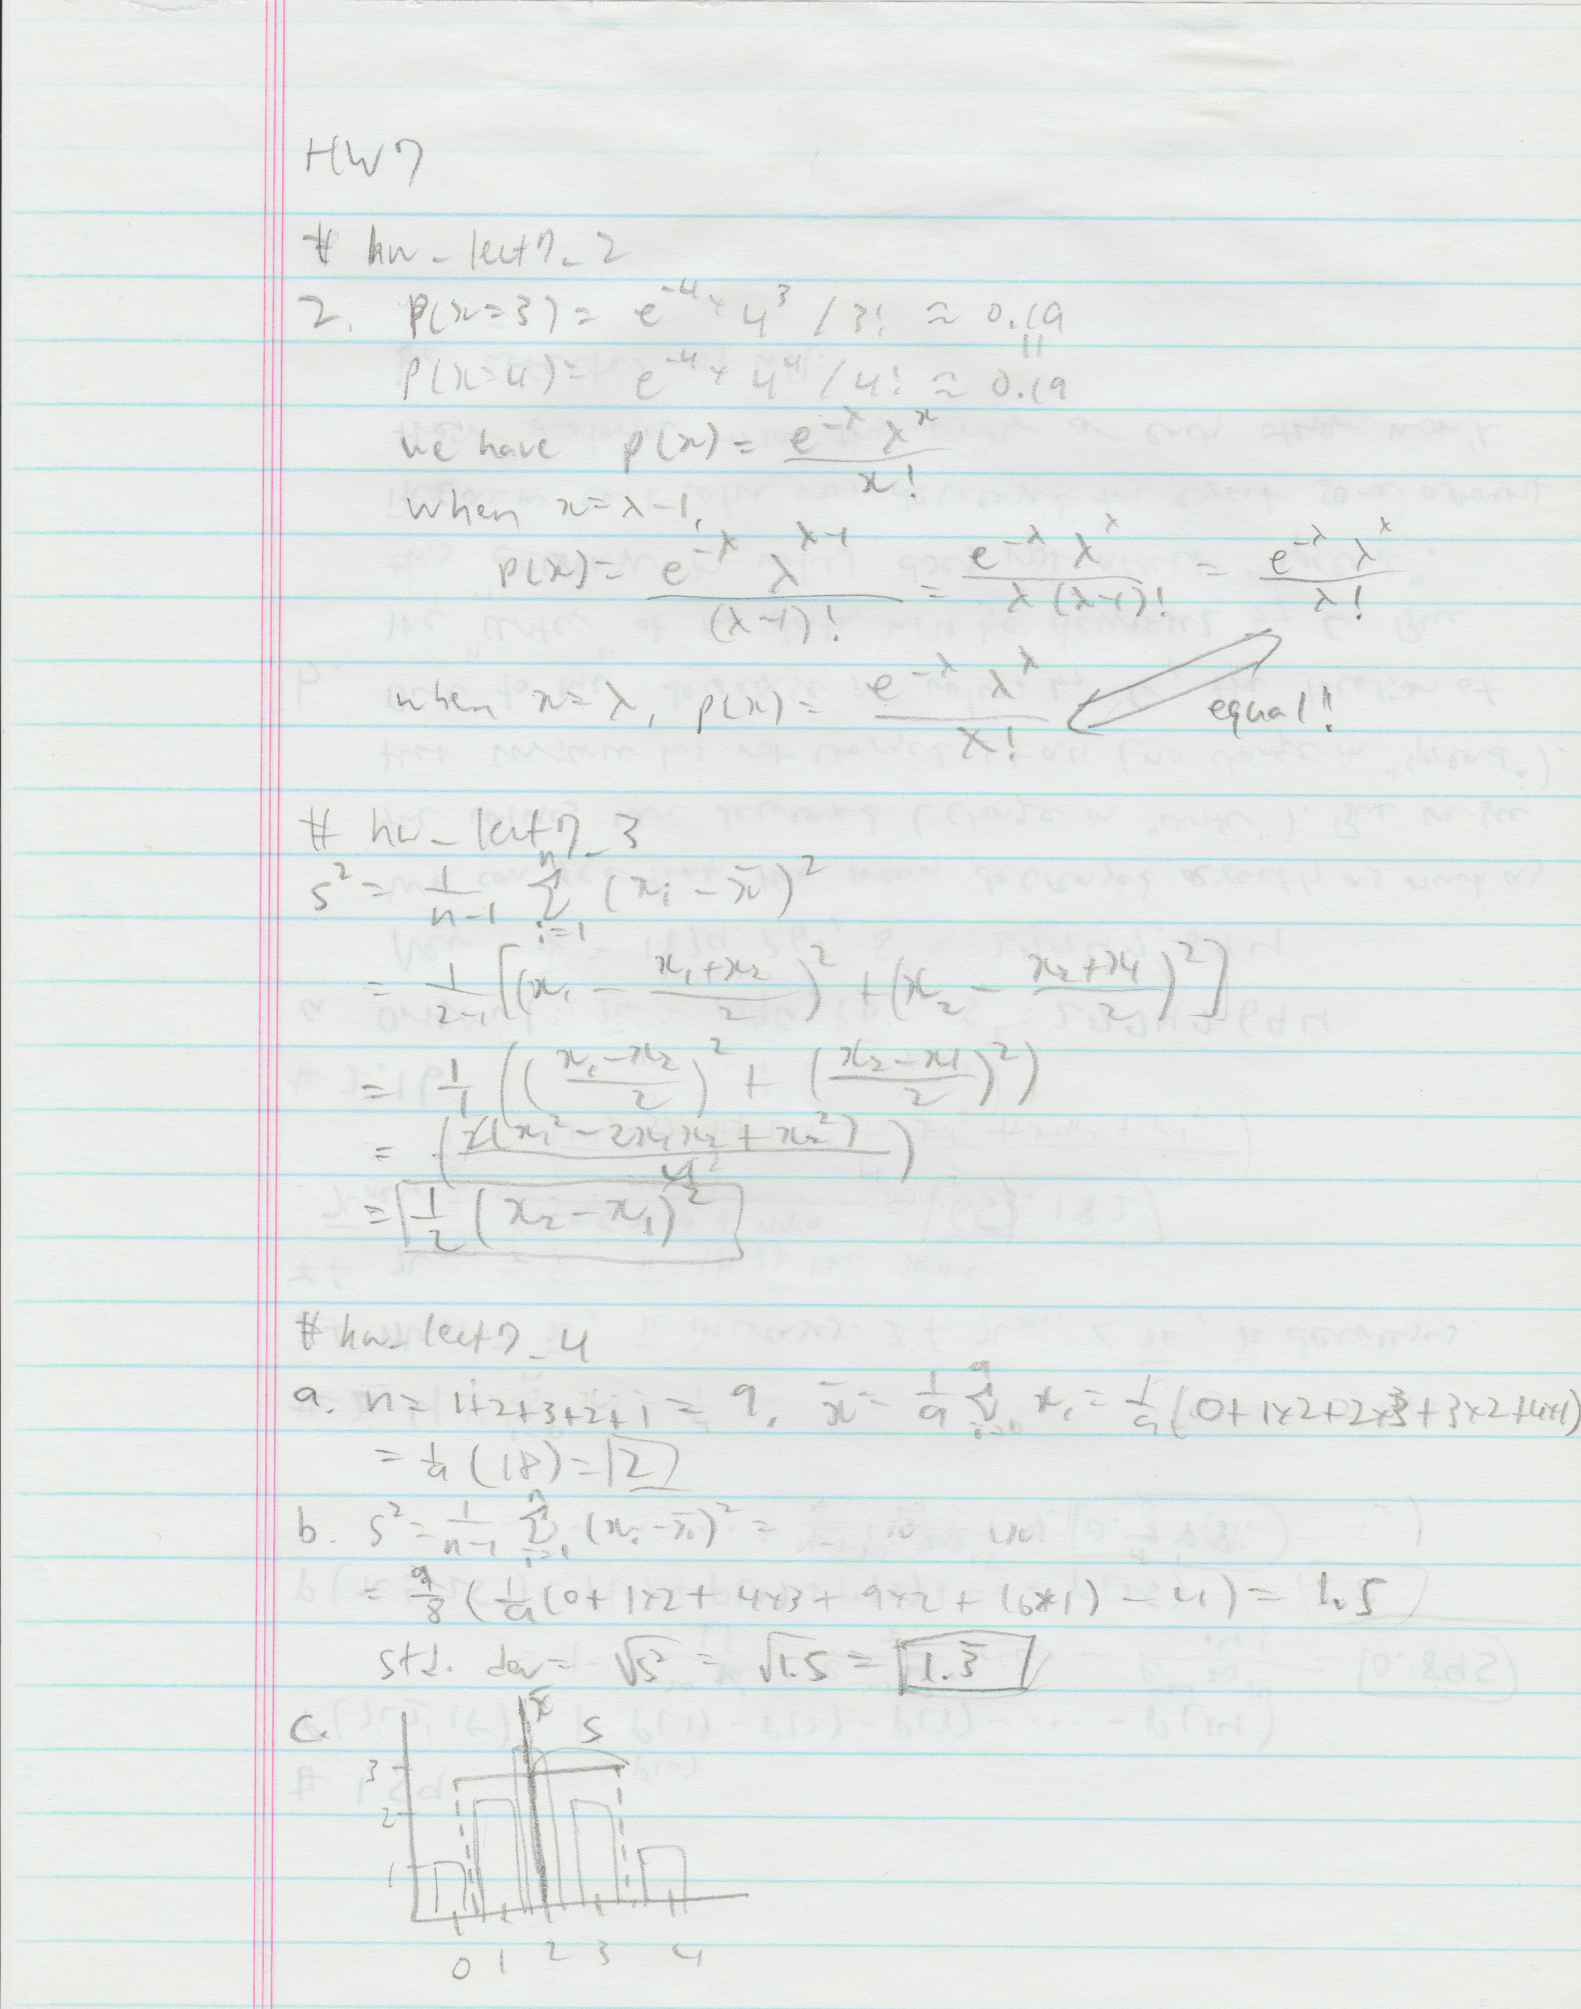 HW7
# hw_lect7_2
2. P(x=3) = e^-4 × 4^3 / 3! ≈ 0.19
||
P(x=4) = e^-4 × 4^4 / 4! ≈ 0.19
we have p(x) = e^-λ λ^x / x!
when x=λ-1,
p(x) = e^-λ λ^λ-1 / (λ-1)! = e^-λ λ^λ / λ(λ-1)! = e^-λ λ^λ / λ!
when x=λ, p(x) = e^-λ λ^λ / λ! equal!!
# hw_lect7_3
s² = 1/n-1 Σ i=1 n (xi - x̄)²
= 1/2-1 [(x1 - x1+x2/2)² + (x2 - x2+x1/2)²]
= 1/1 ((x1-x2/2)² + (x2-x1/2)²)
= (2(x1² - 2x1x2 + x2²) / 4 2)
= 1/2 (x2 - x1)²
# hw_lect7_4
a. n = 1+2+3+2+1 = 9, x̄ = 1/9 Σ 9 xi = 1/9 (0+1×2+2×3+3×2+4×1)
= 1/9 (18) = 2
b. s² = 1/n-1 Σ i=1 n (xi - x̄)² =
= 9/8 (1/9 (0+1×2+4×3+9×2+16×1) - 4) = 1.5
std. dev = √s² = √1.5 = 1.3
c. x̄ S
3
2
1
0 1 2 3 4